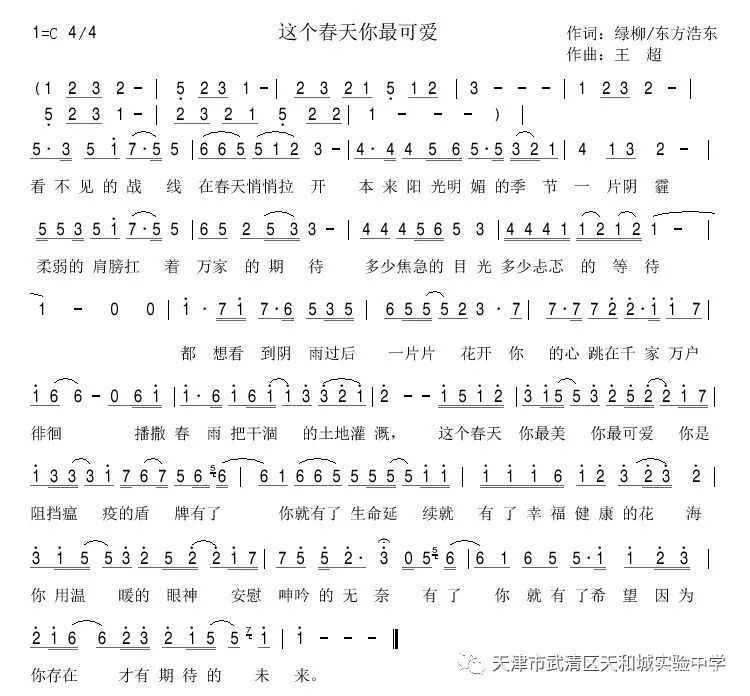 1=C 4/4 这个春天你最可爱 作词：绿柳/东方浩东
作曲：王 超
(1 2 3 2 - | 5 2 3 1 - | 2 3 2 1 5 1 2 | 3 - - - | 1 2 3 2 - |
5 2 3 1 - | 2 3 2 1 5 2 2 | 1 - - - ) |
5· 3 5 1 7·5 5 | 6 6 5 5 1 2 3 - | 4·4 4 5 6 5·5 3 2 1 | 4 1 3 2 - |
看不见的战 线 在春天悄悄拉 开 本来阳光明媚的季 节 一 片阴 霾
5 5 3 5 1 7·5 5 | 6 5 2 5 3 3 - | 4 4 4 5 6 5 3 | 4 4 4 1 1 2 1 2 | 1 - |
柔弱的 肩膀扛 着 万家 的 期 待 多少焦急的 目 光 多少忐忑 的 等 待
1 - 0 0 | 1· 7 1 7·6 5 3 5 | 6 5 5 5 2 3· 7 | 7·7 7 2 2·1 1 7 |
都 想看 到阴 雨过后 一片片 花开 你 的心 跳在千 家 万户
1 6 6 - 0 6 1 | 1· 6 1 6 1 1 3 3 2 1 | 2 - - 1 | 1 5 1 2 3 1 5 5 3 2 5 2 2 1 7 |
徘徊 播撒 春 雨 把干涸 的土地灌 溉， 这个春天 你最美 你最可爱 你是
1 3 3 3 1 7 6 7 5 6 5 6 | 6 1 6 6 5 5 5 5 5 1 1 | 1 1 1 6 1 2 3 2 3 2 |
阻挡瘟 疫的盾 牌有了 你就有了 生命延 续就 有 了 幸 福 健 康 的 花 海
3 1 5 5 3 2 5 2 2 1 7 | 7 5 5 2· 3 0 5 5 6 | 6 1 6 5 5·1 1 2 3 |
你 用温 暖的 眼神 安慰 呻吟的 无 奈 有 了 你 就 有 了 希 望 因 为
2 1 6 6 2 3 2 1 5 5 7 1 | 1 - - ‖
你存在 才有 期 待 的 未 来。
天津市武清区天和城实验中学